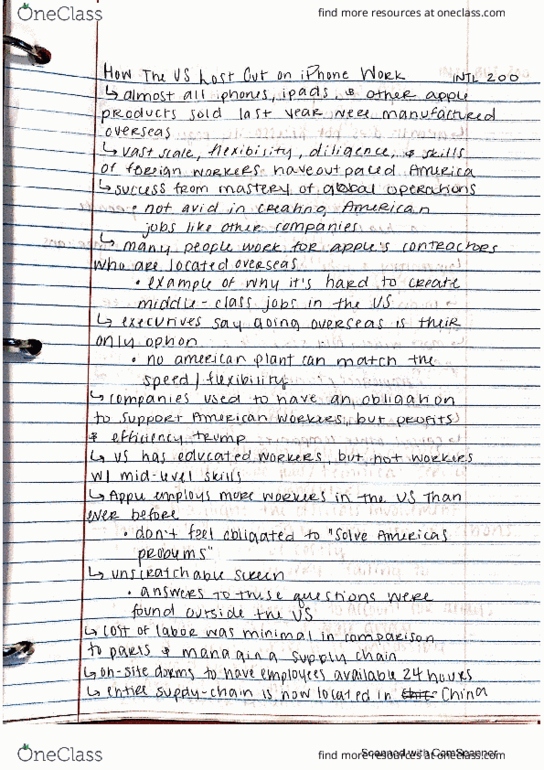 OneClass
find more resources at oneclass.com
How The US Lost Out on iPhone Work INTL 200
↳ almost all phones, ipads, & other apple
products sold last year were manufactured
overseas
↳ vast scale, flexibility, diligence, & skills
of foreign workers have outpaced America
↳ success from mastery of global operations
• not avid in creating American
jobs like other companies
↳ many people work for apple's contractors
who are located overseas
• example of why it's hard to create
middle-class jobs in the US
↳ executives say going overseas is their
only option
• no american plant can match the
speed/flexibility
↳ companies used to have an obligation
to support American workers, but profits
& efficiency trump
↳ US has educated workers, but not workers
w/ mid-level skills
↳ Apple employs more workers in the US than
ever before
• don't feel obligated to "Solve Americas
problems"
↳ unscratchable screen
• answers to these questions were
found outside the US
↳ cost of labor was minimal in comparison
to parts & managing a supply chain
↳ on-site dorms to have employees available 24 hours
↳ entire supply-chain is now located in China
OneClass
find more resources at oneclass.com
Scanned with CamScanner